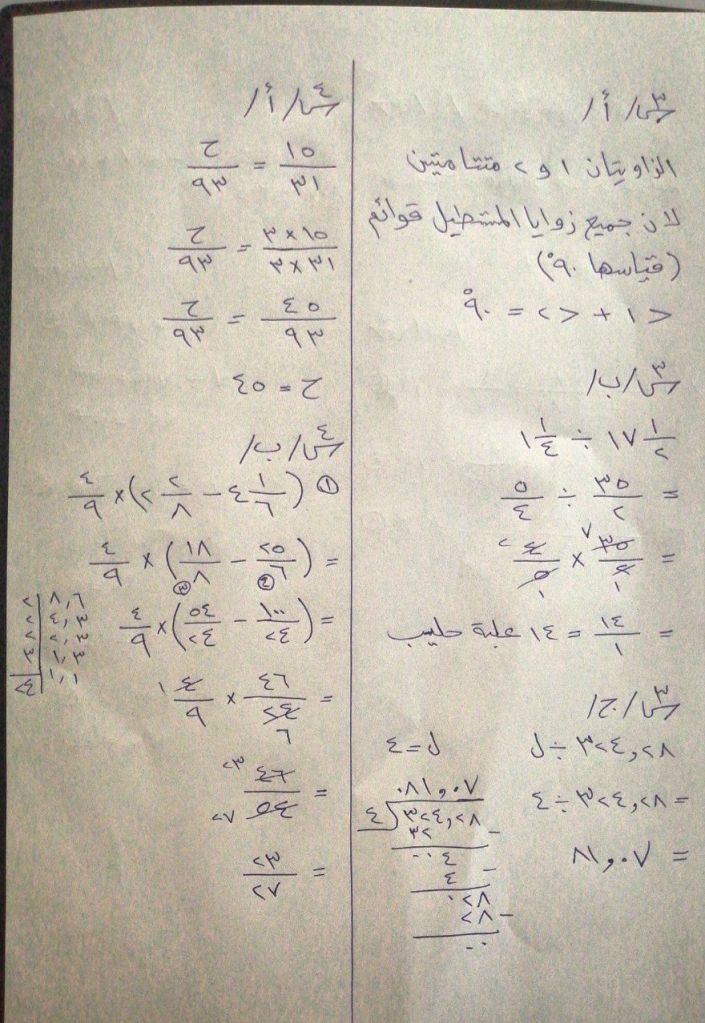 س٣/أ/
الزاويتان ١ و ٢ متتامتين
لان جميع زوايا المستطيل قوائم
(قياسها ٩٠°)
> ١ + > ٢ = ٩٠°
س٣/ب/
١٧ ١/٢ ÷ ١ ١/٤
= ٣٥/٢ ÷ ٥/٤
= ٣٥/٢ × ٤/٥ ٧ ٢ ١ ١
= ١٤/١ = ١٤ علبة حليب
س٣/ج/
٣٢٤,٢٨ ÷ ل ل = ٤
= ٣٢٤,٢٨ ÷ ٤
= ٨١,٠٧
٠٨١,٠٧
٤ ٣٢٤,٢٨
٣٢ -
٠٠٤
٤ -
٠٢٨
٢٨ -
٠٠
س٤/أ/
١٥/٣١ = ح/٩٣
١٥×٣/٣١×٣ = ح/٩٣
٤٥/٩٣ = ح/٩٣
ح = ٤٥
س٤/ب/
① (٤ ١/٦ − ٢ ٢/٨) × ٤/٩
= (٢٥/٦ − ١٨/٨) × ٤/٩ ④ ③
= (١٠٠/٢٤ − ٥٤/٢٤) × ٤/٩
= ٤٦/٢٤ × ٤/٩ ٦ ١
= ٤٦/٥٤ ٢٣ ٢٧
= ٢٣/٢٧
٦,٨ ٢
٣,٤ ٢
٣,٢ ٢
٣,١ ٣
١,١ ٢٤